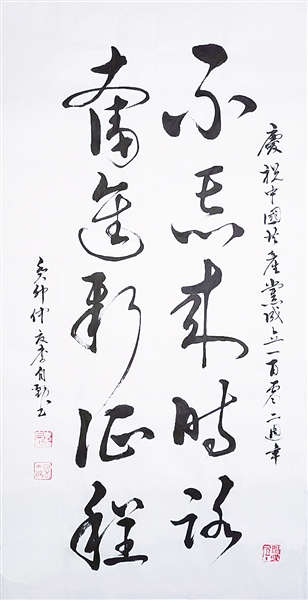 慶祝中國共產黨成立一百零二周年
不忘来时路
奮進新征程
癸卯仲夏李自勤书